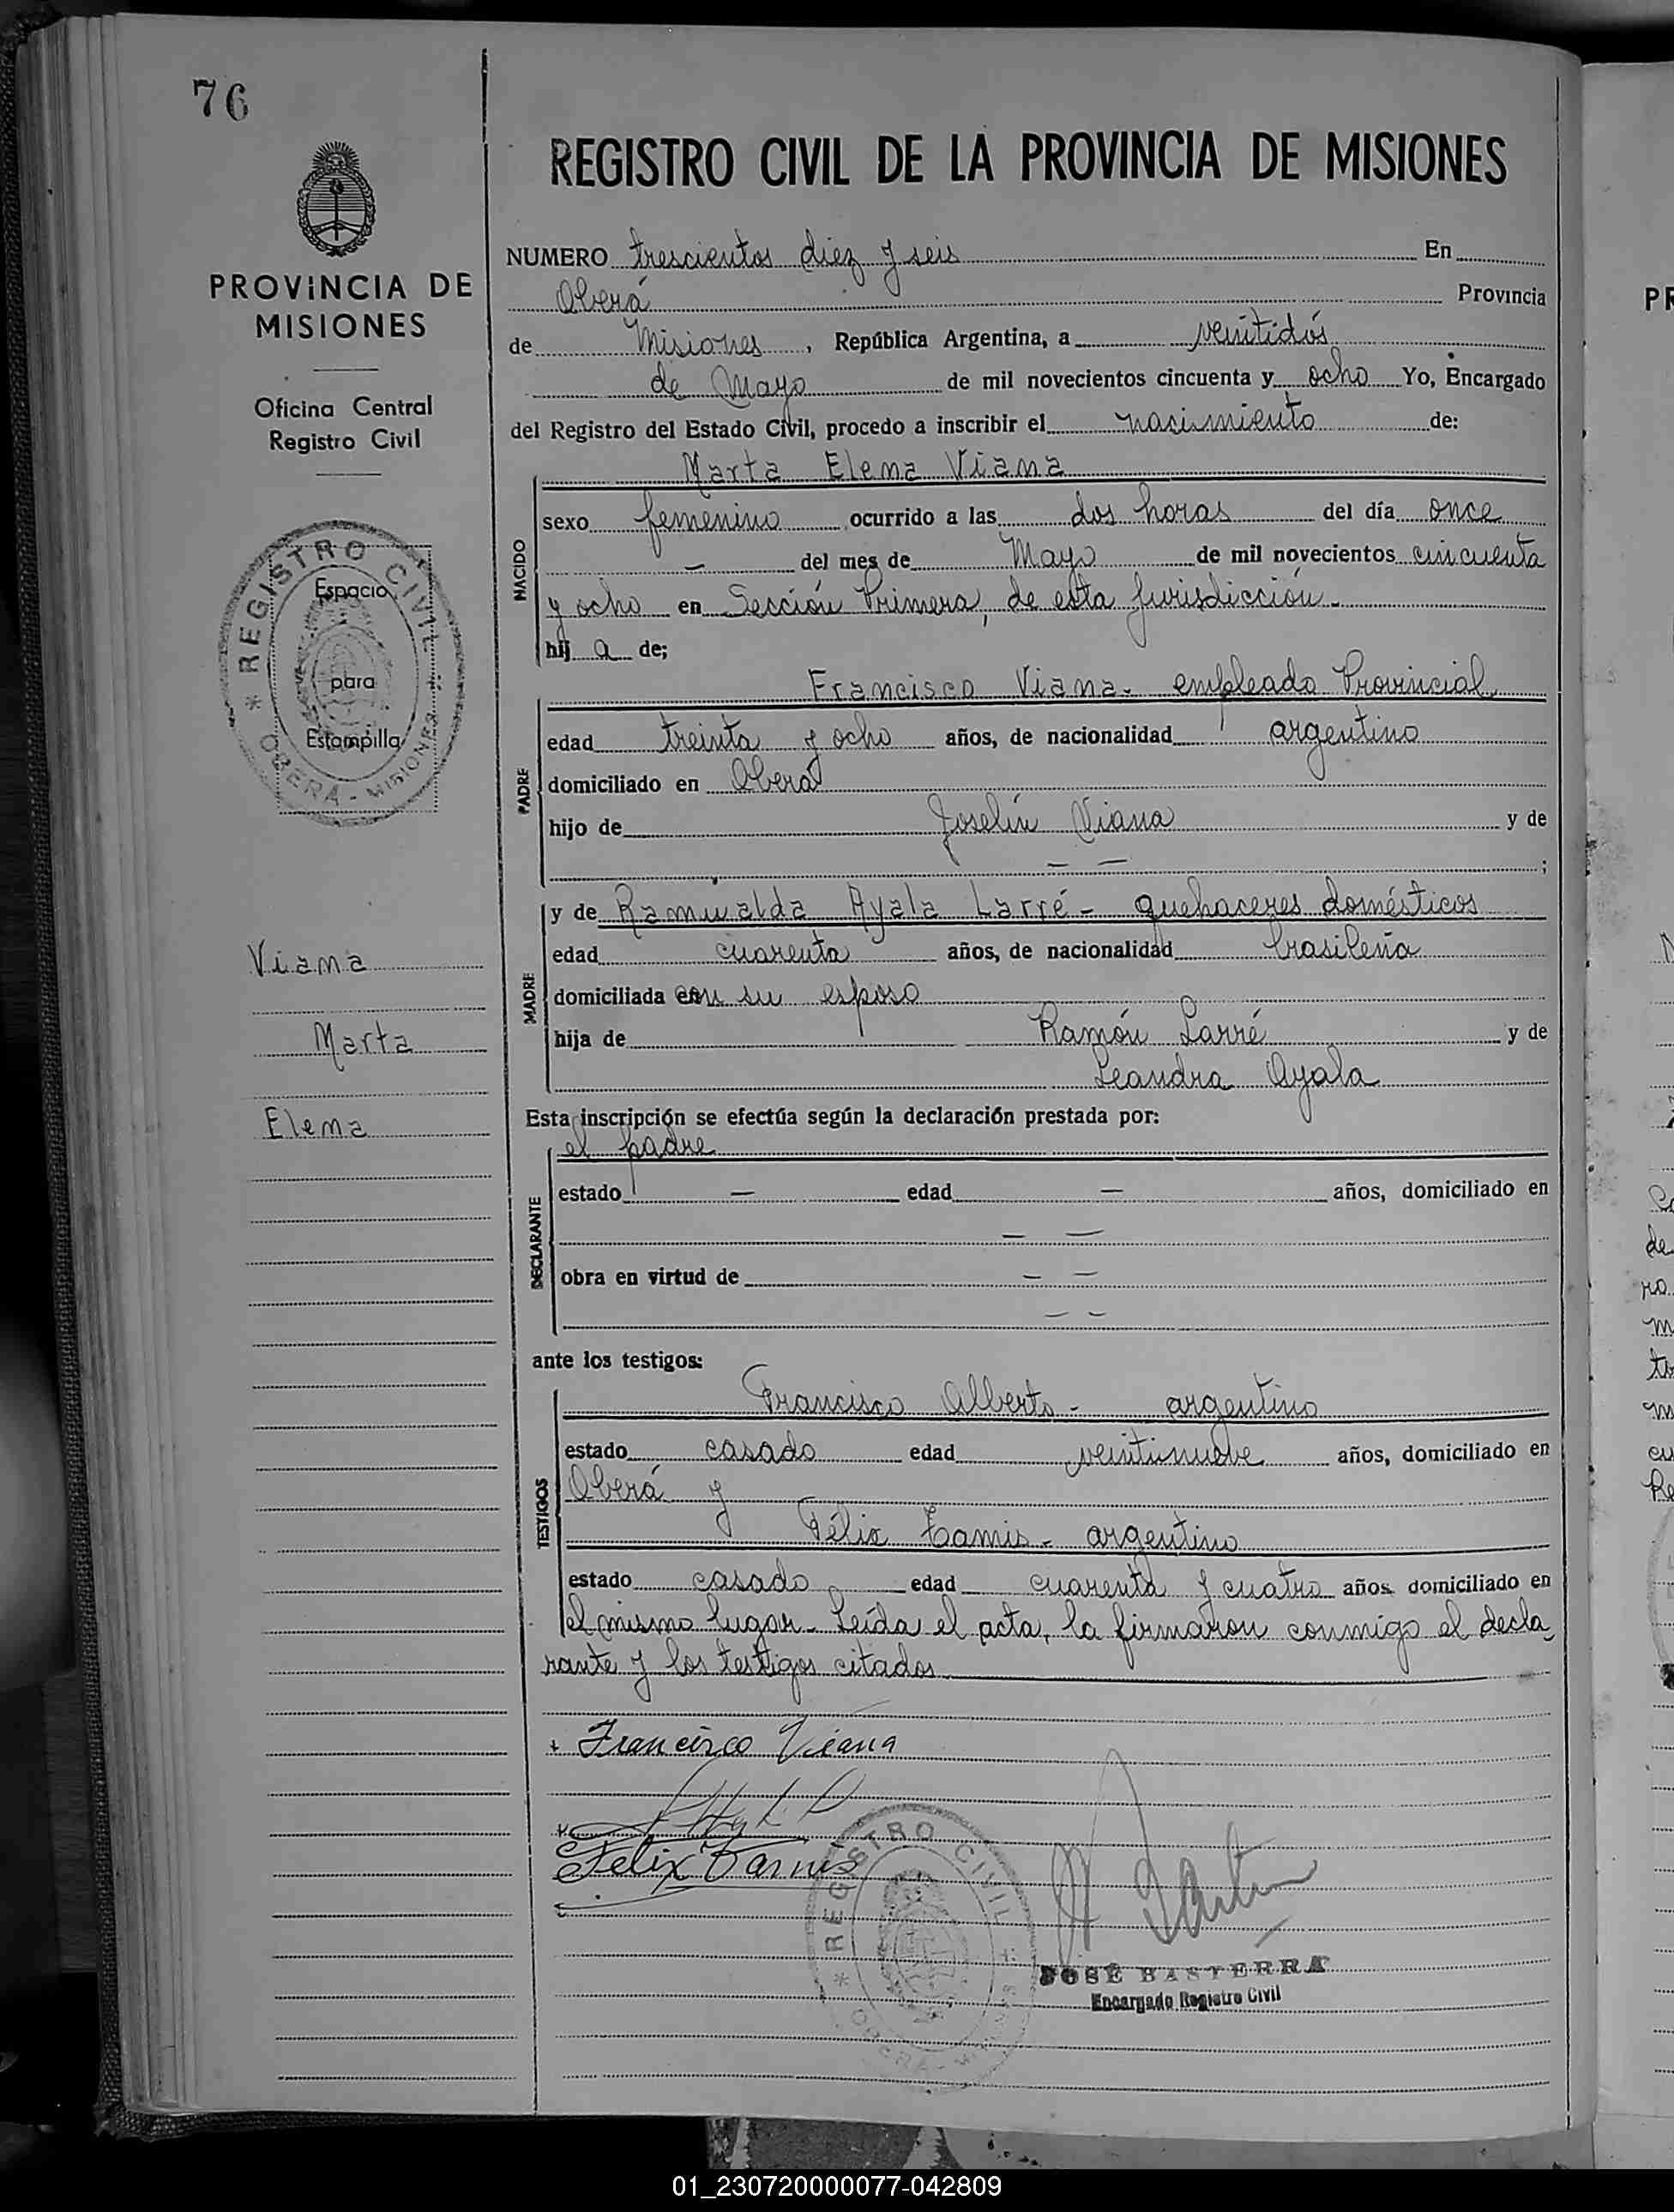 76
PROVINCIA DE
MISIONES
Oficina Central
Registro Civil
REGISTRO CIVIL
Espacio
para
Estampilla
OBERA - MISIONES
Viana
Marta
Elena
REGISTRO CIVIL DE LA PROVINCIA DE MISIONES
NUMERO trescientos diez y seis En
Oberá Provincia
de Misiones, República Argentina, a veintidós
de Mayo de mil novecientos cincuenta y ocho Yo, Encargado
del Registro del Estado Civil, procedo a inscribir el nacimiento de:
Marta Elena Viana
NACIDO
sexo femenino ocurrido a las dos horas del día once
— del mes de Mayo de mil novecientos cincuenta
y ocho en Sección Primera, de esta Jurisdicción.-
hij a de;
Francisco Viana. empleado Provincial
PADRE
edad treinta y ocho años, de nacionalidad argentino
domiciliado en Oberá
hijo de Joselín Viana y de
— — ;
y de Ramualda Ayala Larré - quehaceres domésticos
MADRE
edad cuarenta años, de nacionalidad brasileña
domiciliada con su esposo
hija de Ramón Larré y de
Leandra Ayala
Esta inscripción se efectúa según la declaración prestada por:
el padre
DECLARANTE
estado — edad — años, domiciliado en
— —
obra en virtud de — —
— —
ante los testigos:
Francisco Alberto - argentino
TESTIGOS
estado casado edad veintinueve años, domiciliado en
Oberá y
Félix Tamis - argentino
estado casado edad cuarenta y cuatro años domiciliado en
el mismo lugar - Leída el acta, la firmaron conmigo el decla-
rante y los testigos citados
Francisco Viana
Felix Tamis
REGISTRO CIVIL
OBERA
JOSÉ BASTERRA
Encargado Registro Civil
01_230720000077-042809